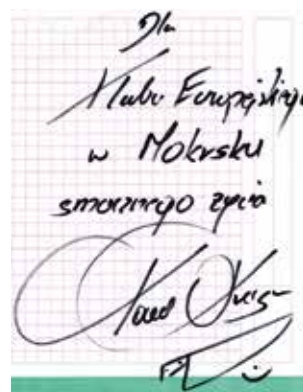 Dla
Klubu Europejskiego
w Mokrsku
smacznego życia
Karol Okrasa